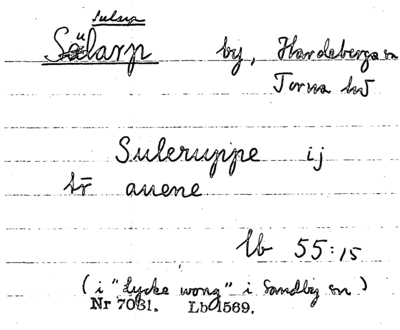 Sularp
Sülarp by, Hardeberga sn
Torna hd
Suleruppe ij
tr auene
lb 55:15
(i "lycke wong" i Sandby sn)
Nr 7031. Lb 1569.